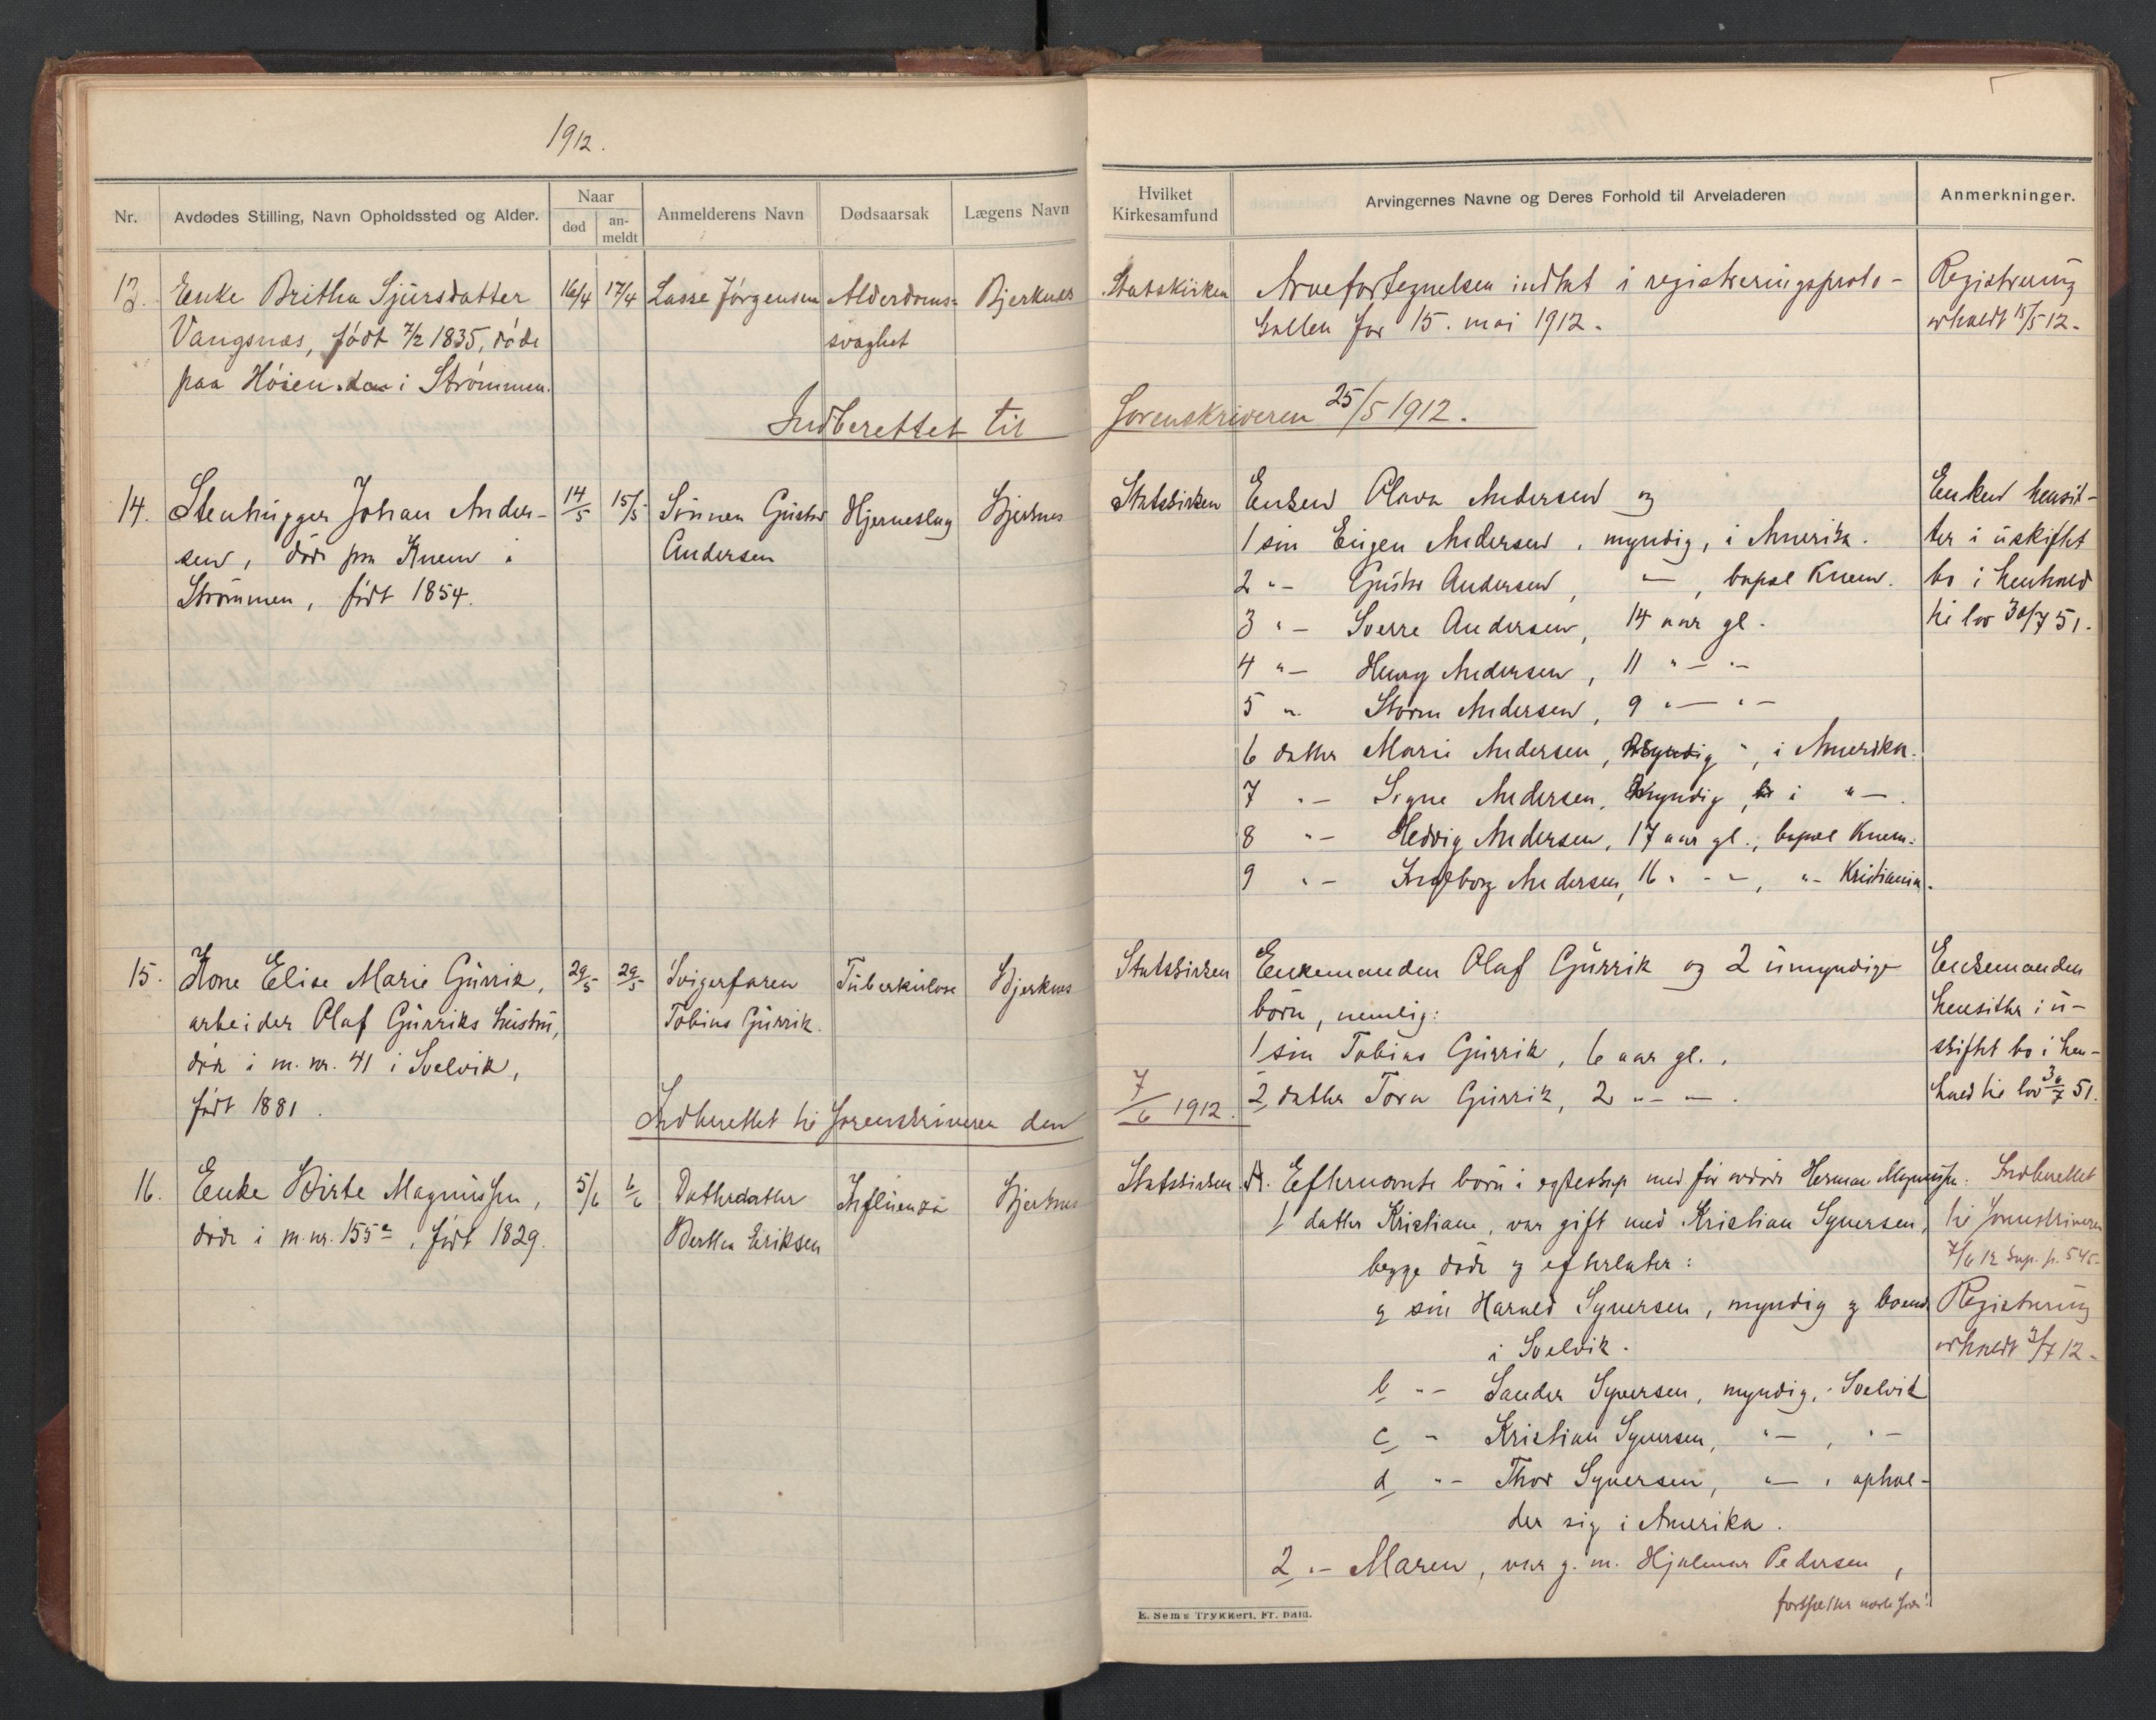 1912.
Nr. Avdødes Stilling, Navn Opholdssted og Alder. Naar død an-meldt Anmelderens Navn Dødsaarsak Lægens Navn
13. Enke Britha Sjursdatter 16/4 17/4 Lasse Jørgensen Alderdoms- Bjerknes
Vangsnæs, født 7/2 1835, døde svaghet
paa Høien i Strømmen.
Indberettet til
14. Stenhugger Johan Ander- 14/5 15/5 Sønnen Gustav Hjerneslag Bjerknes
sen, död paa Knem i Andersen
Strømmen, født 1854.
15. Kone Elise Marie Gurrik, 29/5 29/5 Svigerfaren Tuberkulose Bjerknes
arbeider Olaf Gurriks hustru, Tobias Gurrik.
död i m. nr. 41 i Svelvik,
født 1881.
Indberettet til Sorenskriveren den
16. Enke Birte Magnussen, 5/6 6/6 Datterdatter Influensa Bjerknes
død i m. nr. 155a, født 1829. Berthe Eriksen
Hvilket Kirkesamfund Arvingernes Navne og Deres Forhold til Arveladeren Anmerkninger.
Statskirken Arvefortegnelsen indtat i registreringsproto- Registrering
kollen for 15. mai 1912. avholdt 15/5 12.
Sorenskriveren 25/5 1912.
Statskirken Enken Olava Andersen og Enken hensit-
1 søn Eugen Andersen, myndig, i Amerika. ter i uskiftet
2 "- Gustav Andersen, "-, bopæl Knem. bo i henhold
3 "- Sverre Andersen, 14 aar gl. til lov 30/7 51.
4 "- Henry Andersen, 11 "- "-
5 " Storm Andersen, 9 "- "-
6 datter Marie Andersen, myndig ", i Amerika.
7 "- Signe Andersen, myndig, i "-.
8 "- Hedvig Andersen, 17 aar gl., bopæl Knem.
9 "- Ingeborg Andersen, 16 " - -, "- Kristiania.
Statskirken Enkemanden Olaf Gurrik og 2 umyndige Enkemanden
børn, nemlig: hensitter i u-
1 søn Tobias Gurrik, 6 aar gl., skiftet bo i hen-
7/6 1912. 2 datter Tora Gurrik, 2 "- -. hold til lov 30/7 51.
Statskirken A. Efternævnte børn i egteskap med før avdøde Herman Magnussen. Indberettet
1 datter Kristiane, var gift med Kristian Syversen, til Sorenskriveren
begge døde og efterlater: 7/6 12 kop. p. 545.
a søn Harald Syversen, myndig og boende Registrering
i Svelvik. avholdt 3/7 12.
b "- Sander Syversen, myndig, - Svelvik
c - Kristian Syversen, "-, "-
d "- Thor Syversen, "-, ophol-
der sig i Amerika.
2 "- Maren, var g. m. Hjalmar Pedersen,
fortsættes næste side!
E. Sem's Trykkeri, Fr. hald.